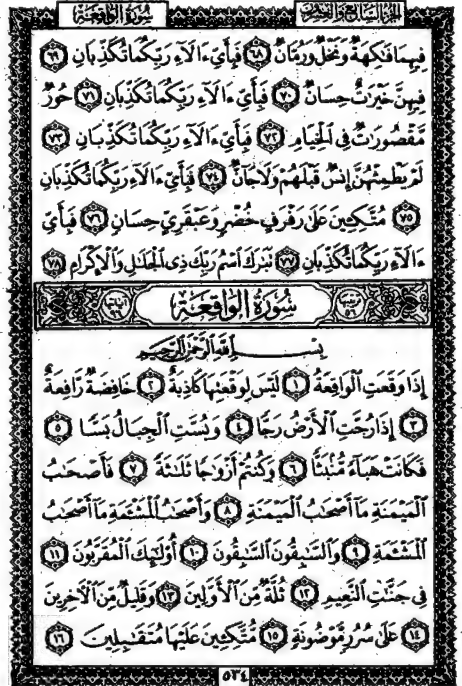 سورة الواقعة الجزء السابع والعشرون
فِيهِمَا فَٰكِهَةٌ وَنَخْلٌ وَرُمَّانٌ ٦٨ فَبِأَيِّ ءَالَآءِ رَبِّكُمَا تُكَذِّبَانِ ٦٩
فِيهِنَّ خَيْرَٰتٌ حِسَانٌ ٧٠ فَبِأَيِّ ءَالَآءِ رَبِّكُمَا تُكَذِّبَانِ ٧١ حُورٌ
مَّقْصُورَٰتٌ فِي ٱلْخِيَامِ ٧٢ فَبِأَيِّ ءَالَآءِ رَبِّكُمَا تُكَذِّبَانِ ٧٣
لَمْ يَطْمِثْهُنَّ إِنسٌ قَبْلَهُمْ وَلَا جَآنٌّ ٧٤ فَبِأَيِّ ءَالَآءِ رَبِّكُمَا تُكَذِّبَانِ
٧٥ مُتَّكِـِٔينَ عَلَىٰ رَفْرَفٍ خُضْرٍ وَعَبْقَرِيٍّ حِسَانٍ ٧٦ فَبِأَيِّ
ءَالَآءِ رَبِّكُمَا تُكَذِّبَانِ ٧٧ تَبَٰرَكَ ٱسْمُ رَبِّكَ ذِي ٱلْجَلَٰلِ وَٱلْإِكْرَامِ ٧٨
سُورَةُ الوَاقِعَةِ
بِسْمِ ٱللَّهِ ٱلرَّحْمَٰنِ ٱلرَّحِيمِ
إِذَا وَقَعَتِ ٱلْوَاقِعَةُ ١ لَيْسَ لِوَقْعَتِهَا كَاذِبَةٌ ٢ خَافِضَةٌ رَّافِعَةٌ
٣ إِذَا رُجَّتِ ٱلْأَرْضُ رَجًّا ٤ وَبُسَّتِ ٱلْجِبَالُ بَسًّا ٥
فَكَانَتْ هَبَآءً مُّنۢبَثًّا ٦ وَكُنتُمْ أَزْوَٰجًا ثَلَٰثَةً ٧ فَأَصْحَٰبُ
ٱلْمَيْمَنَةِ مَآ أَصْحَٰبُ ٱلْمَيْمَنَةِ ٨ وَأَصْحَٰبُ ٱلْمَشْـَٔمَةِ مَآ أَصْحَٰبُ
ٱلْمَشْـَٔمَةِ ٩ وَٱلسَّٰبِقُونَ ٱلسَّٰبِقُونَ ١٠ أُو۟لَٰٓئِكَ ٱلْمُقَرَّبُونَ ١١
فِي جَنَّٰتِ ٱلنَّعِيمِ ١٢ ثُلَّةٌ مِّنَ ٱلْأَوَّلِينَ ١٣ وَقَلِيلٌ مِّنَ ٱلْءَاخِرِينَ
١٤ عَلَىٰ سُرُرٍ مَّوْضُونَةٍ ١٥ مُّتَّكِـِٔينَ عَلَيْهَا مُتَقَٰبِلِينَ ١٦
٥٣٤